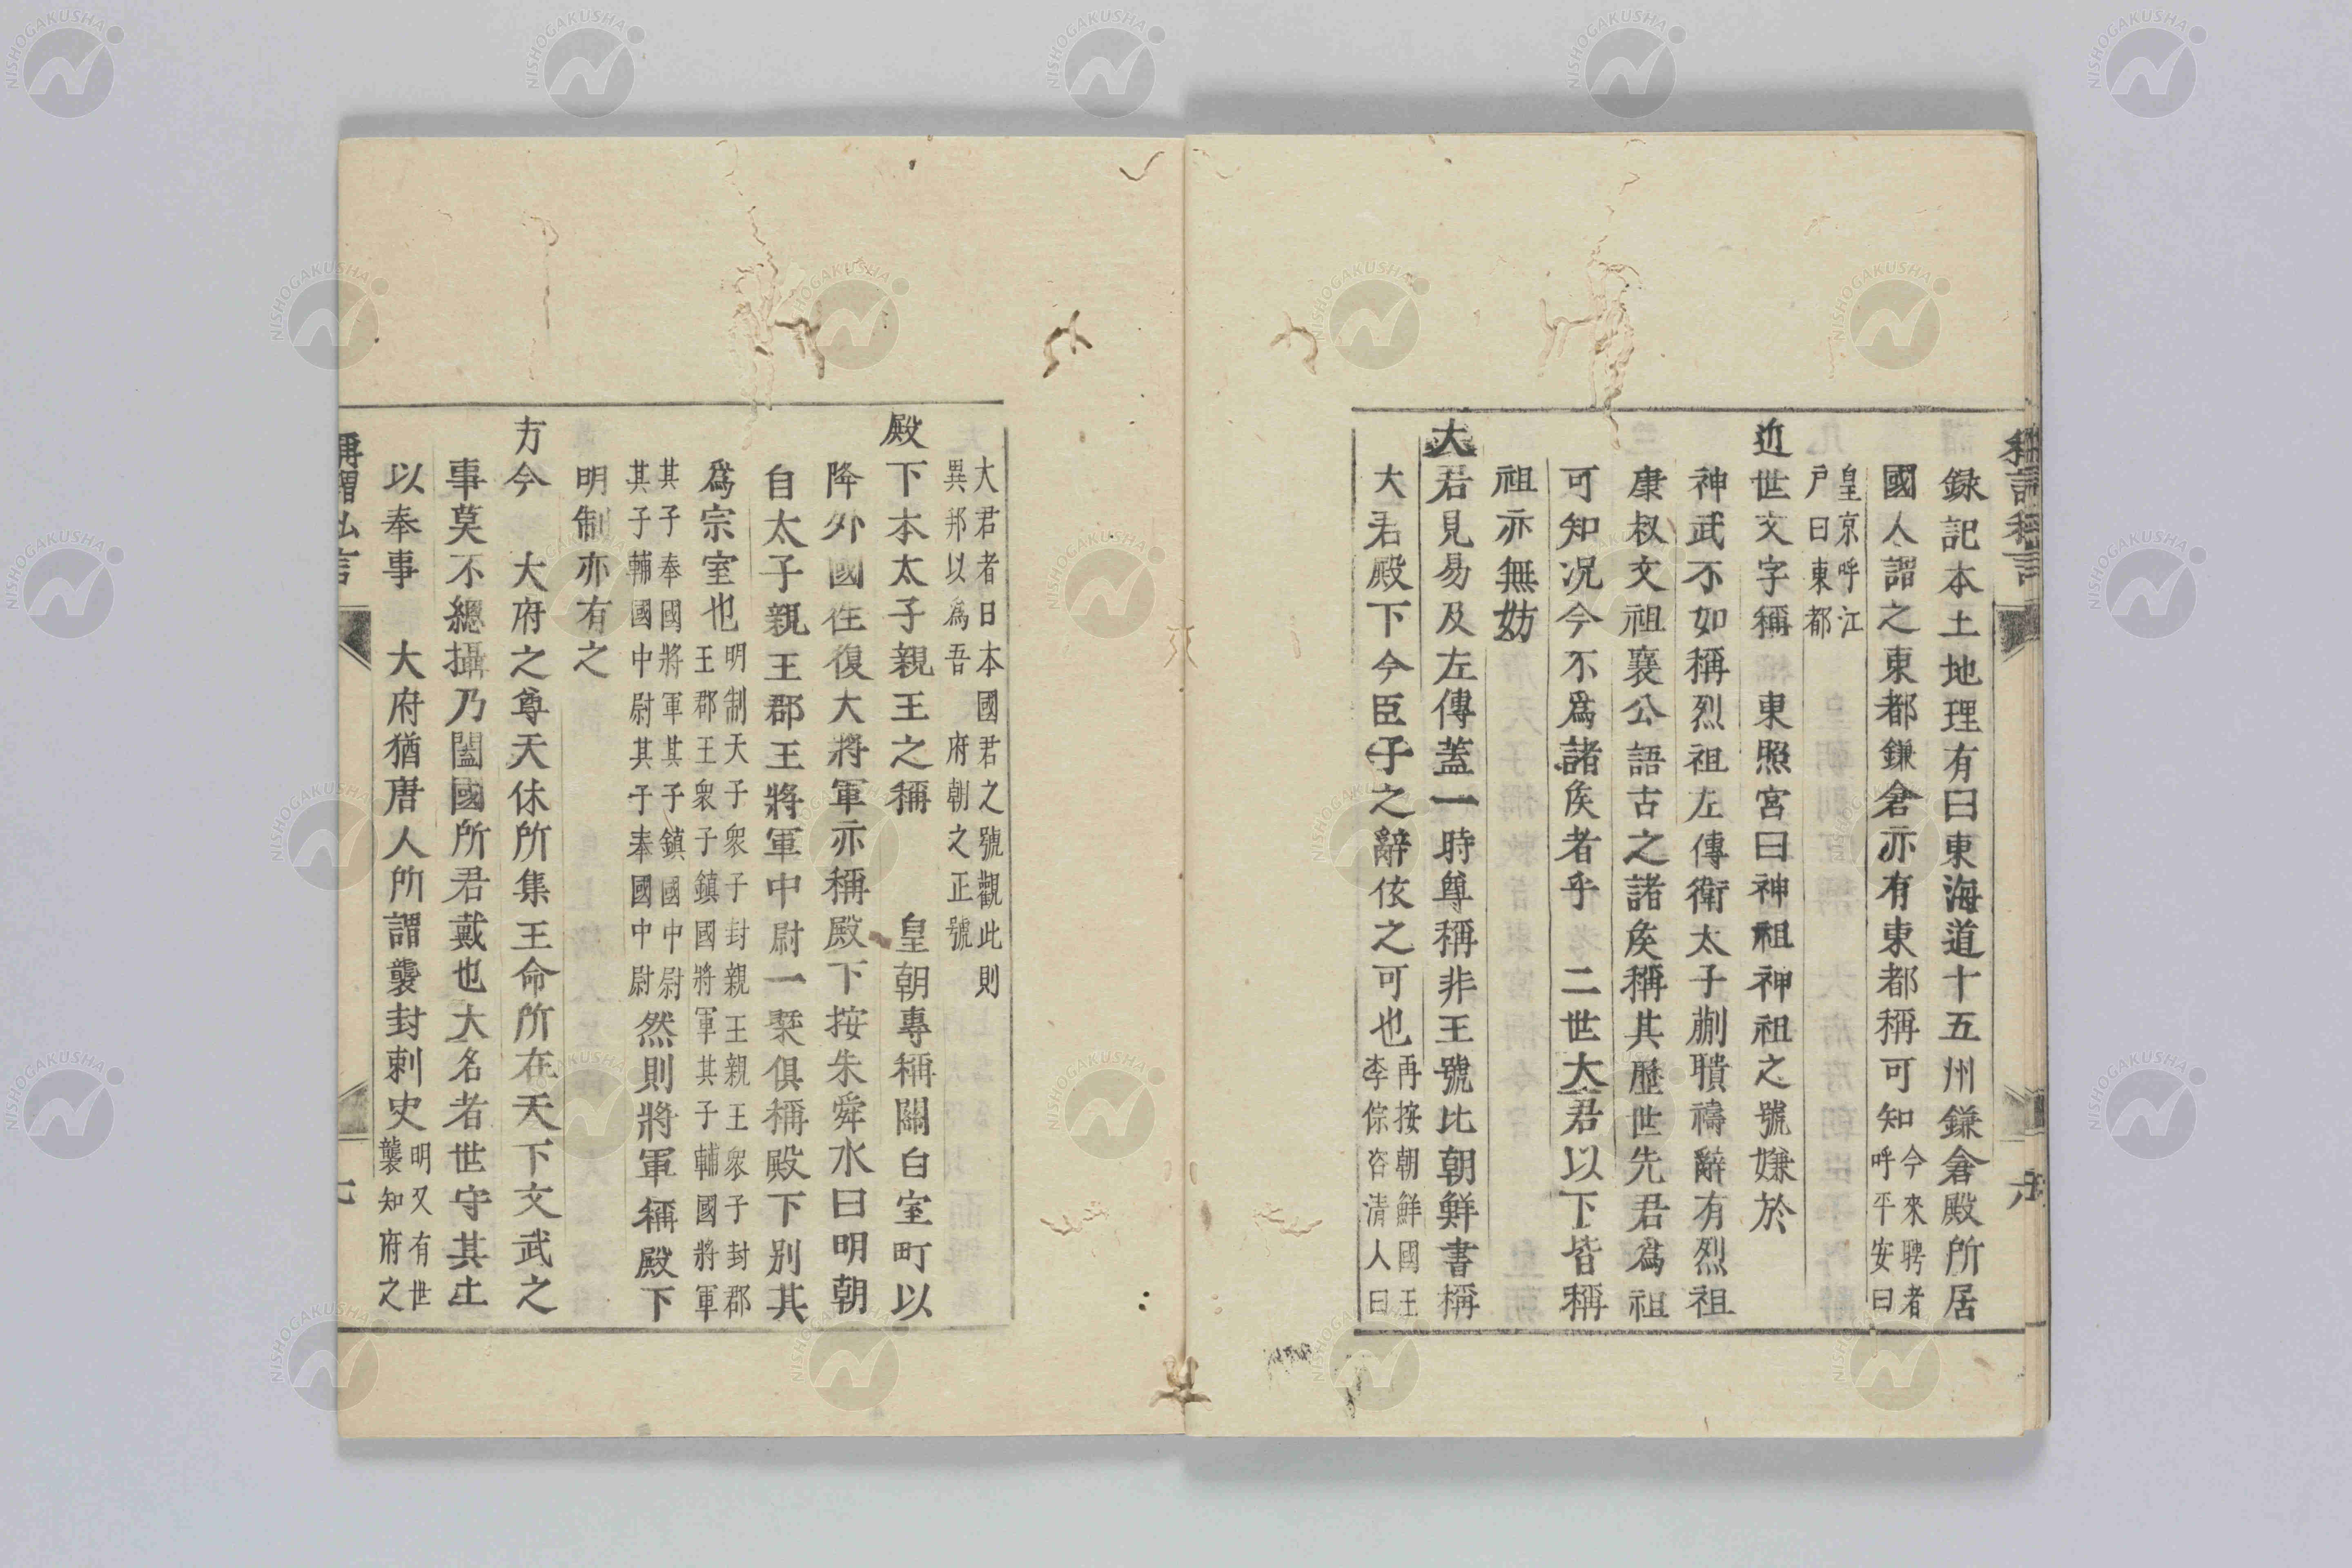 録記本土地理有曰東海道十五州鎌倉殿所居
國人謂之東都鎌倉亦有東都稱可知今來聘者呼平安曰
皇京呼江戸曰東都
近世文字稱　東照宮曰神祖神祖之號嫌於
神武不如稱烈祖左傳衛太子蒯聵禱辭有烈祖
康叔文祖襄公語古之諸矦稱其歷世先君爲祖
可知况今不爲諸矦者乎　二世大君以下皆稱
祖亦無妨
大君見易及左傳蓋一時尊稱非王號比朝鮮書稱
大君殿下今臣子之辭依之可也再按朝鮮國王李倧咨清人曰
六
大君者日本國君之號觀此則異邦以爲吾　府朝之正號
殿下本太子親王之稱　皇朝專稱關白室町以
降外國徃復大將軍亦稱殿下按朱舜水曰明朝
自太子親王郡王將軍中尉一槩俱稱殿下別其
爲宗室也明制天子衆子封親王親王衆子封郡王郡王衆子鎮國將軍其子輔國將軍
其子奉國將軍其子鎮國中尉其子輔國中尉其子奉國中尉然則將軍稱殿下
明制亦有之
方今　大府之尊天休所集王命所在天下文武之
事莫不總攝乃闔國所君戴也大名者世守其土
以奉事　大府猶唐人所謂襲封刺史明又有世襲知府之
稱謂私言
七
NISHOGAKUSHA